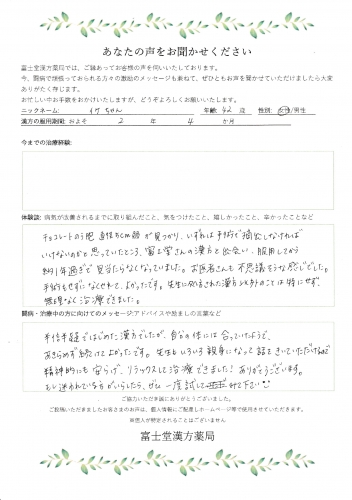 あなたの声をお聞かせください
富士堂漢方薬局では、ご縁あってお客様の声を伺いいたしております。
今、闘病で頑張っておられる方々の激励のメッセージも兼ねて、ぜひともお声を聞かせていただけましたら大変
ありがたく存じます。
お忙しい中お手数をおかけいたしますが、どうぞよろしくお願いいたします。
ニックネーム: イケちゃん 年齢: 42 歳 性別: 女性/男性
漢方の服用期間: およそ 2 年 4 か月
今までの治療経験:
体験談: 病気が改善されるまでに取り組んだこと、気をつけたこと、嬉しかったこと、辛かったことなど
チョコレートのう胞 直径8cm弱が見つかり、いずれは手術で摘出しなければ
いけないのかと思っていたところ、富士堂さんの漢方と出会い、服用してから
約1年過ぎで見当たらなくなっていました。お医者さんも不思議そうな感じでした。
手術もせずになくせれて、よかったです。先生に処方された漢方以外のことは特にせず、
無理なく治療できました。
闘病・治療中の方に向けてのメッセージ: アドバイスや励ましの言葉など
半信半疑ではじめた漢方でしたが、自分の体には合っていたようで、
あきらめず続けてよかったです。先生もいろいろ親身になって話をきいていただけたので
精神的にも安らげ、リラックスして治療できました！ありがとうございます。
もし迷われている方がいらしたら、ぜひ一度試してみて下さい
ご協力いただき誠にありがとうございました。
ご投稿いただきましたお客さまのお声は、個人情報にご配慮しホームページ等で使用させていただきます。
※個人が特定されることはございません。
富士堂漢方薬局